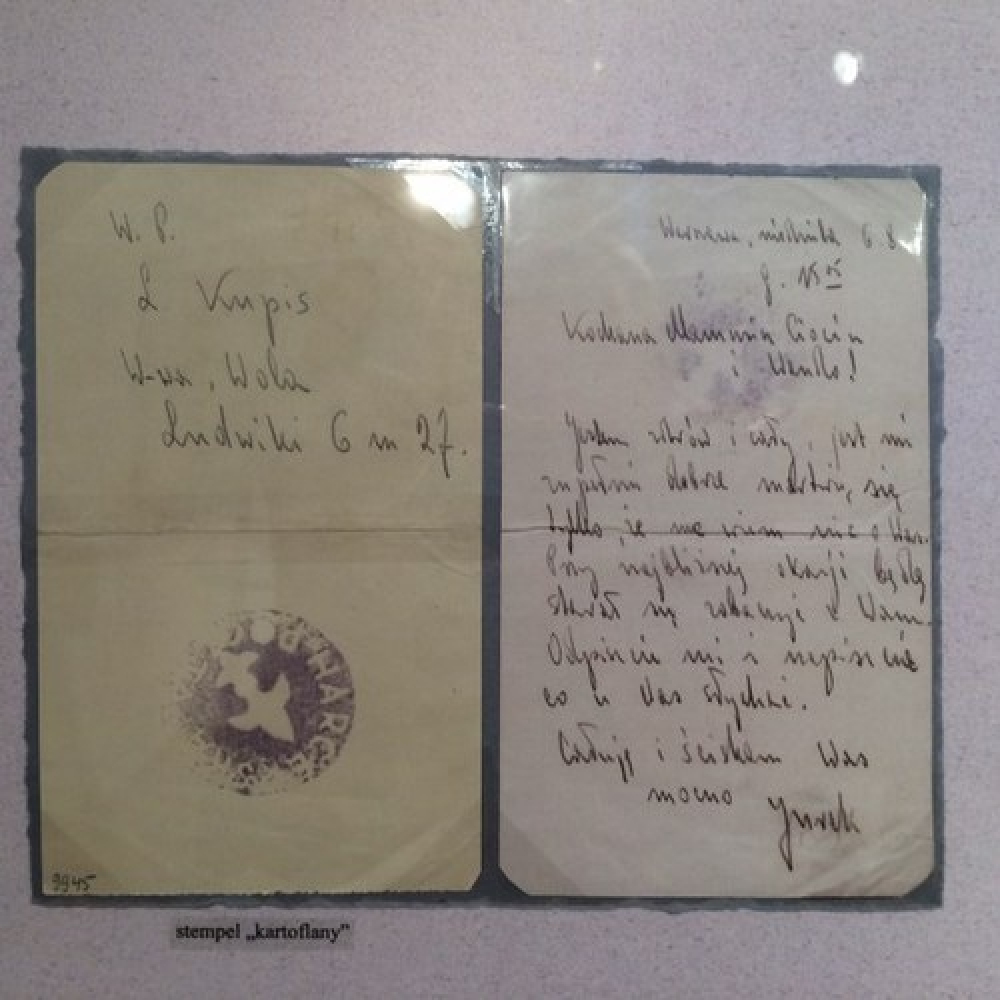 W. P.
L Kupis
W-wa, Wola
Ludwiki 6 m 27.
HARC
9945
Warszawa, niedziela 6 8
g. 15
Kochana Mamusiu Ciociu
i Wando!
Jestem zdrów i cały, jest mi
zupełnie dobrze martwię się
tylko, że nie wiem nic o Was.
Przy najbliższej okazji będę
starał się zobaczyć z Wami.
Odpiszcie mi i napiszcie
co u Was słychać.
Całuję i ściskam Was
mocno Jurek
stempel „kartoflany”